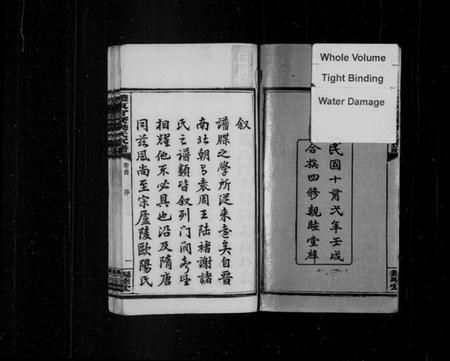 Whole Volume
Tight Binding
Water Damage
民國十有弍年壬戌
合族四修親睦堂梓
敘
譜牒之學所從来遠矣自晉
南北朝有袁周王陸褚謝諸
氏之譜類皆叙列門閥
相耀他不必具也沿及隋唐
同兹風尚至宗廬陵歐陽氏
卷首
序
一